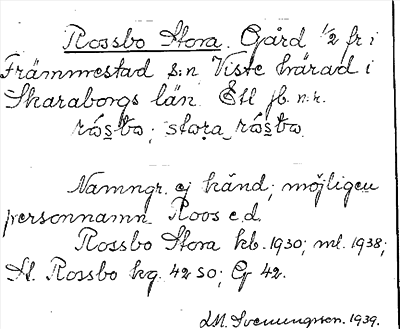 Rossbo Stora. Gård 1/2 fr i
Främmestad s:n Viste härad i
Skaraborgs län. Ett jb. n:r.
råsbo; stora råsbo
Namngr. ej känd; möjligen
personnamn Roos e.d.
Rossbo Stora kb. 1930; ml. 1938;
St. Rossbo kg. 42 SO; G 42.
Svenungson. 1939.